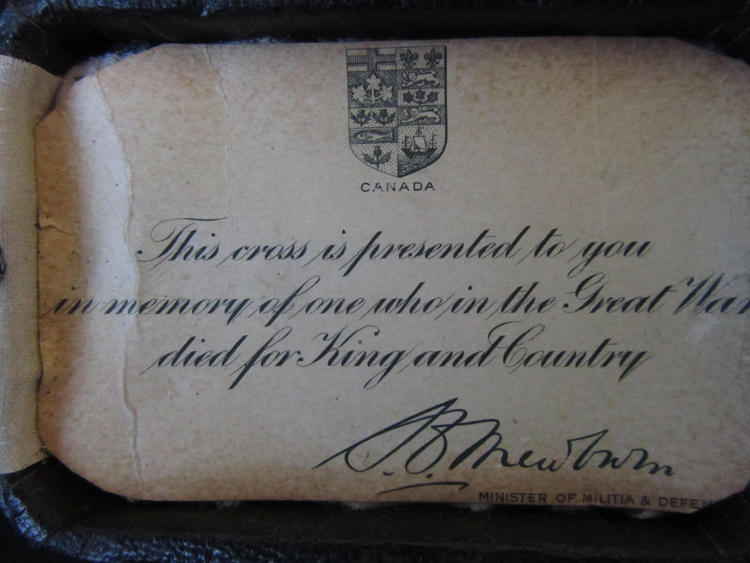 CANADA
This cross is presented to you
in memory of one who in the Great War
died for King and Country
S.C. Mewburn
MINISTER OF MILITIA & DEFEN